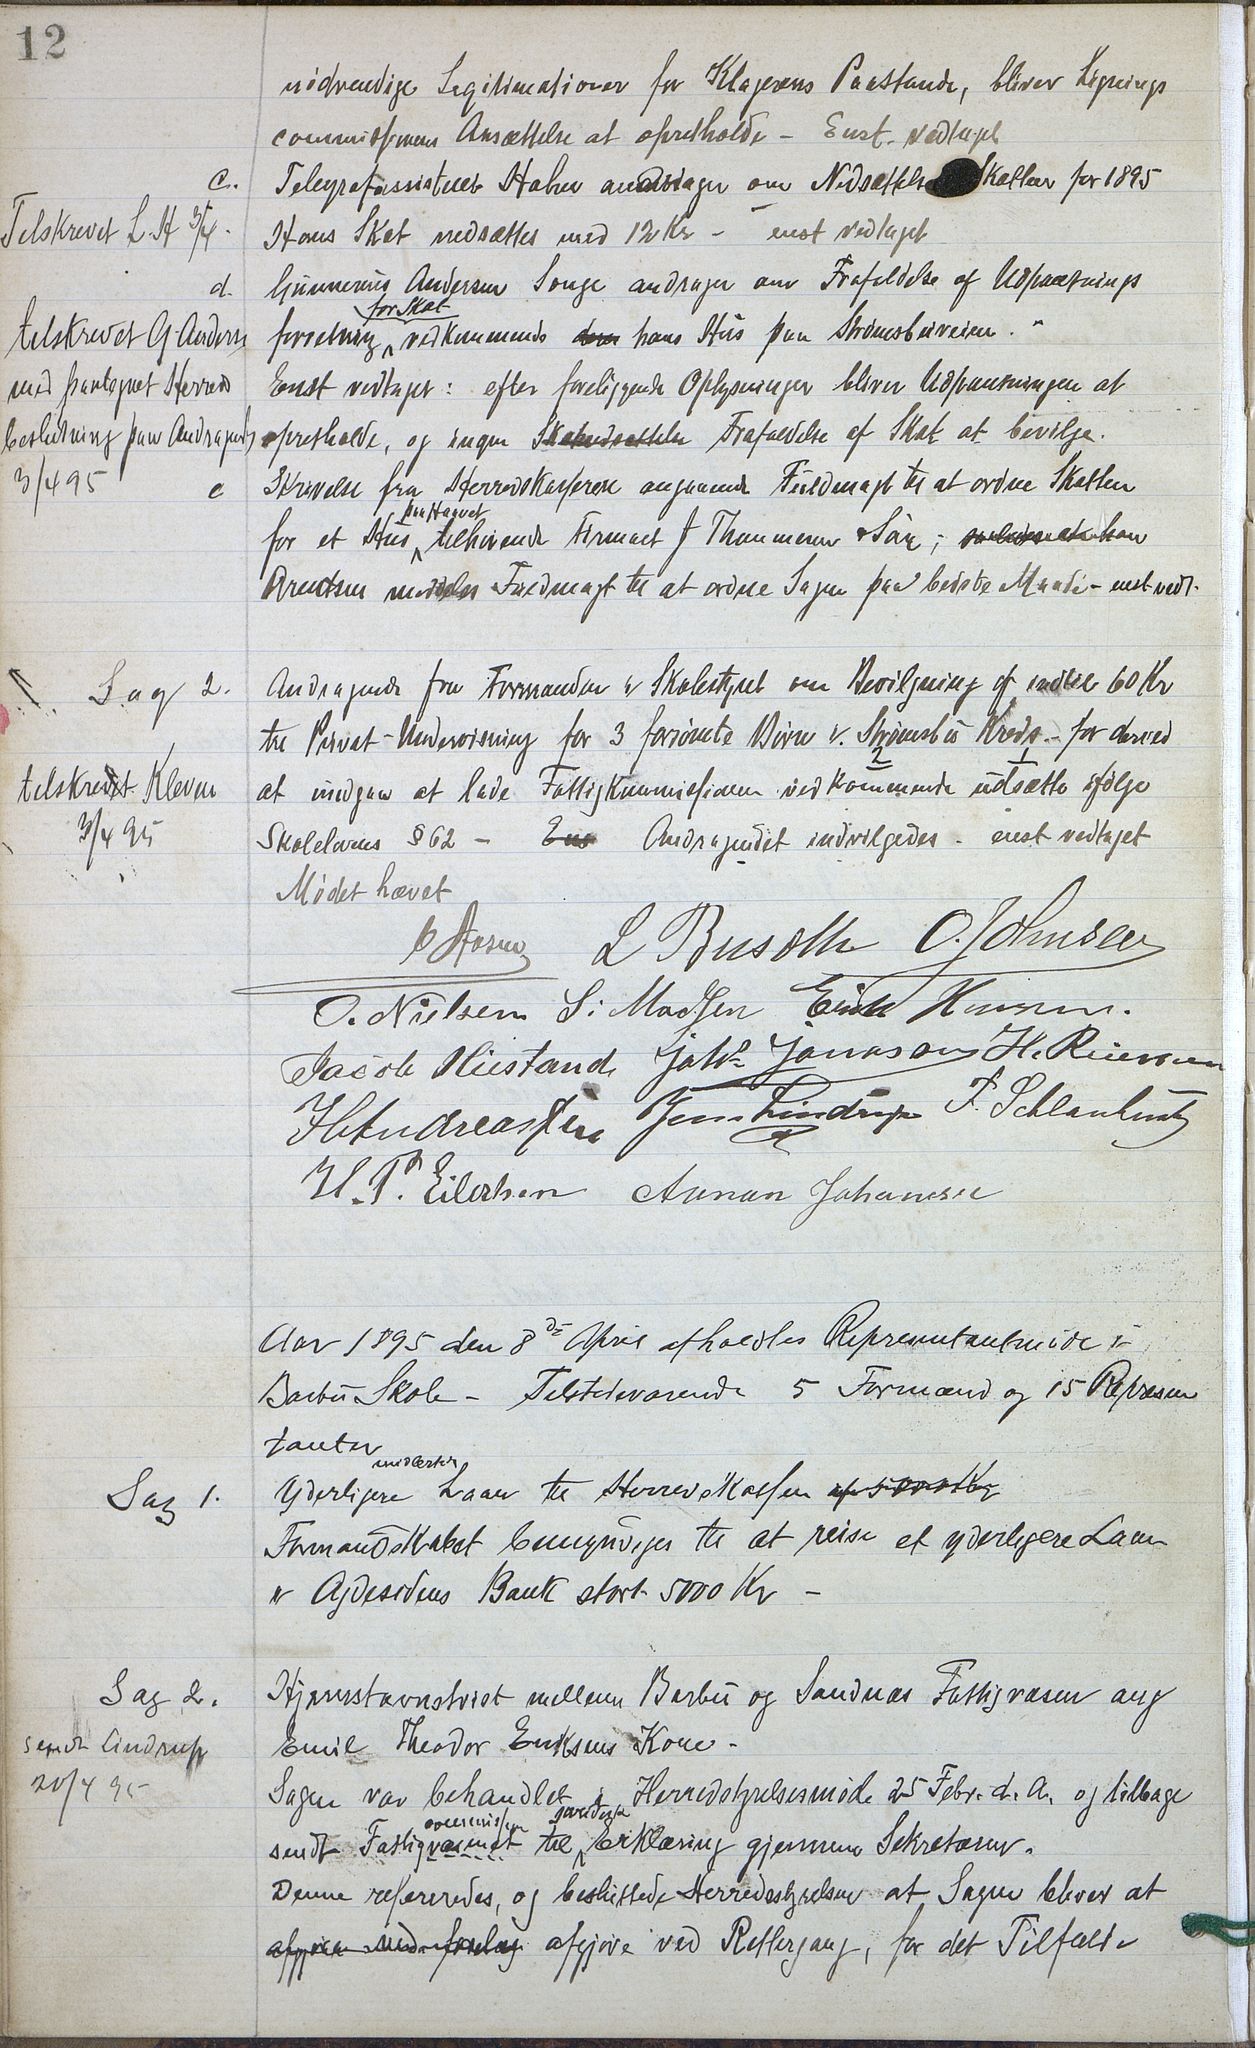 12
nödvendige Legitimationer for Klagerens Paastande, bliver Lignings
commissionens Ansættelse at opretholde - Enst. vedtaget
c. Telegrafassistent Holm andrager om Nedsættelse Skatten for 1895
Tilskrevet L. H 3/4.
Hans Skat nedsættes med 12 Kr - enst vedtaget
d. Gunnerius Andersen Songe andrager om Frafaldelse af Udpantnings
for Skat
tilskrevet G Anders
forretning vedkommende hans Hus paa Strömsbuveien.
med paategnet Herreds
Enst vedtaget: efter foreliggende Oplysninger bliver Udpantningen at
beslutning paa Andragendet
opretholde, og ingen Skatnedsættelse Frafaldelse af Skat at bevilge.
3/4 95
e Skrivelse fra Herredskasserer angaaende Fuldmagt til at ordne Skatten
paa Hagvet
for et Hus tilhörende Firmaet J Thommesen & Sön;
Arentsen meddeles Fuldmagt til at ordne Sagen paa bedste Maade - enst vedt.
Sag 2. Andragende fra Formanden i Skolestyret om Bevilgning af indtil 60 Kr
til Privat-Undervisning for 3 forsömte Börn i Strömsbu Kreds - for derved
2 1
tilskrevet Kleven
at undgaa at lade Fattigkommissionen vedkommende udsætte ifölge
3/4 95
Skolelovens § 62 - Ens Andragendet indvilgedes. enst vedtaget
Mödet hævet
L Busdth O. Johnsen
O. Nielsen S. Madsen Erik Hansen.
Jacob Hiistand Jak. Jonassen H. Reiersen
H Andreassen Jens Lindrup F. Schlanbusch
H. P. Eilertsen Aanon Johansen
Aar 1895 den 8de April afholdtes Representantmöde i
Barbu Skole - Tilstedeværende 5 Formænd og 15 Repræsen
tanter
midlertid
Sag 1. Yderligere Laan til Herredskassen af 5000 Kr
Formandskabet bemyndiges til at reise et yderligere Laan
i Agdesidens Bank stort 5000 Kr -
Sag 2. Hjemstavnstvist mellem Barbu og Sandnæs Fattigvæsen ang
sendt Lindrup
Emil Theodor Eriksens Kone -
20/4 95
Sagen var behandlet i Herredstyrelsesmöde 25 Febr. d. A. og tilbage
commissionen
sendt Fattigvæsenet til Erklæring gjennem Sekretæren.
Denne refereredes, og besluttede Herredsstyrelsen at Sagen bliver at
afgjöre ved Rettergang, for det Tilfælde